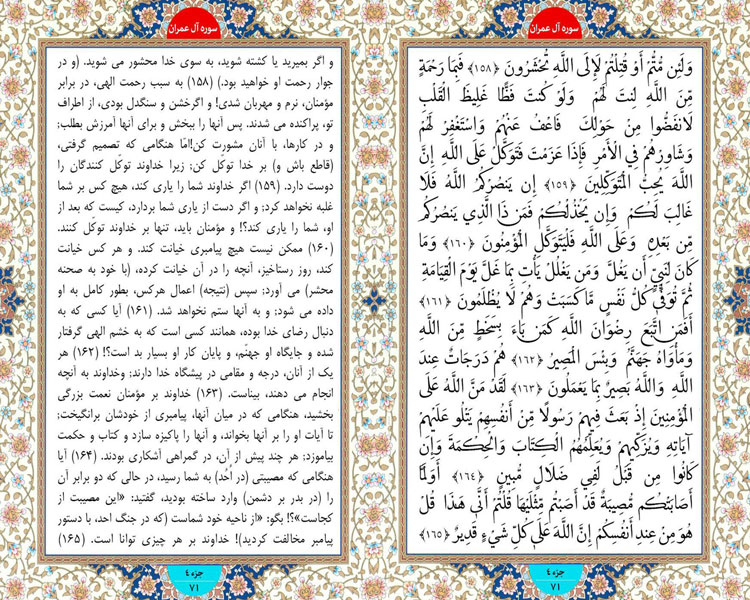 سوره آل عمران
وَلَئِن مُّتُّمْ أَوْ قُتِلْتُمْ لَإِلَى اللَّهِ تُحْشَرُونَ ﴿۱۵۸﴾ فَبِمَا رَحْمَةٍ
مِّنَ اللَّهِ لِنتَ لَهُمْ وَلَوْ كُنتَ فَظًّا غَلِيظَ الْقَلْبِ
لَانفَضُّوا مِنْ حَوْلِكَ فَاعْفُ عَنْهُمْ وَاسْتَغْفِرْ لَهُمْ
وَشَاوِرْهُمْ فِي الْأَمْرِ فَإِذَا عَزَمْتَ فَتَوَكَّلْ عَلَى اللَّهِ إِنَّ
اللَّهَ يُحِبُّ الْمُتَوَكِّلِينَ ﴿۱۵۹﴾ إِن يَنصُرْكُمُ اللَّهُ فَلَا
غَالِبَ لَكُمْ وَإِن يَخْذُلْكُمْ فَمَن ذَا الَّذِي يَنصُرُكُم
مِّن بَعْدِهِ وَعَلَى اللَّهِ فَلْيَتَوَكَّلِ الْمُؤْمِنُونَ ﴿۱۶۰﴾ وَمَا
كَانَ لِنَبِيٍّ أَن يَغُلَّ وَمَن يَغْلُلْ يَأْتِ بِمَا غَلَّ يَوْمَ الْقِيَامَةِ
ثُمَّ تُوَفَّى كُلُّ نَفْسٍ مَّا كَسَبَتْ وَهُمْ لَا يُظْلَمُونَ ﴿۱۶۱﴾
أَفَمَنِ اتَّبَعَ رِضْوَانَ اللَّهِ كَمَن بَاءَ بِسَخَطٍ مِّنَ اللَّهِ
وَمَأْوَاهُ جَهَنَّمُ وَبِئْسَ الْمَصِيرُ ﴿۱۶۲﴾ هُمْ دَرَجَاتٌ عِندَ
اللَّهِ وَاللَّهُ بَصِيرٌ بِمَا يَعْمَلُونَ ﴿۱۶۳﴾ لَقَدْ مَنَّ اللَّهُ عَلَى
الْمُؤْمِنِينَ إِذْ بَعَثَ فِيهِمْ رَسُولًا مِّنْ أَنفُسِهِمْ يَتْلُو عَلَيْهِمْ
آيَاتِهِ وَيُزَكِّيهِمْ وَيُعَلِّمُهُمُ الْكِتَابَ وَالْحِكْمَةَ وَإِن
كَانُوا مِن قَبْلُ لَفِي ضَلَالٍ مُّبِينٍ ﴿۱۶۴﴾ أَوَلَمَّا
أَصَابَتْكُم مُّصِيبَةٌ قَدْ أَصَبْتُم مِّثْلَيْهَا قُلْتُمْ أَنَّى هَٰذَا قُلْ
هُوَ مِنْ عِندِ أَنفُسِكُمْ إِنَّ اللَّهَ عَلَى كُلِّ شَيْءٍ قَدِيرٌ ﴿۱۶۵﴾
جزء ٤
۷۱
سوره آل عمران
و اگر بمیرید یا کشته شوید، به سوی خدا محشور می شوید. (و در
جوار رحمت او خواهید بود.) (۱۵۸) به سبب رحمت الهی، در برابر
مؤمنان، نرم و مهربان شدی! و اگرخشن و سنگدل بودی، از اطراف
تو، پراکنده می شدند. پس آنها را ببخش و برای آنها آمرزش بطلب؛
و در کارها، با آنان مشورت کن!امّا هنگامی که تصمیم گرفتی،
(قاطع باش و) بر خدا توکل کن؛ زیرا خداوند توکّل کنندگان را
دوست دارد. (۱۵۹) اگر خداوند شما را یاری کند، هیچ کس بر شما
غلبه نخواهد کرد؛ و اگر دست از یاری شما بردارد، کیست که بعد از
او، شما را یاری کند؟! و مؤمنان باید، تنها بر خداوند توکل کنند.
(۱۶۰) ممکن نیست هیچ پیامبری خیانت کند. و هر کس خیانت
کند، روز رستاخیز، آنچه را در آن خیانت کرده، (با خود به صحنه
محشر) می آورد؛ سپس (نتیجه) اعمال هرکس، بطور کامل به او
داده می شود؛ و به آنها ستم نخواهد شد. (۱۶۱) آیا کسی که به
دنبال رضای خدا بوده، همانند کسی است که به خشم الهی گرفتار
شده و جایگاه او جهنّم، و پایان کار او بسیار بد است؟! (۱۶۲) هر
یک از آنان، درجه و مقامی در پیشگاه خدا دارند؛ وخداوند به آنچه
انجام می دهند، بیناست. (۱۶۳) خداوند بر مؤمنان نعمت بزرگی
بخشید، هنگامی که در میان آنها، پیامبری از خودشان برانگیخت؛
تا آیات او را بر آنها بخواند، و آنها را پاکیزه سازد و کتاب و حکمت
بیاموزد؛ هر چند پیش از آن، در گمراهی آشکاری بودند. (۱۶۴) آیا
هنگامی که مصیبتی (در اُحُد) به شما رسید، در حالی که دو برابر آن
را (در بدر بر دشمن) وارد ساخته بودید، گفتید: «این مصیبت از
کجاست»؟! بگو: «از ناحیه خود شماست (که در جنگ احد، با دستور
پیامبر مخالفت کردید)! خداوند بر هر چیزی توانا است. (۱۶۵)
جزء ٤
۷۱